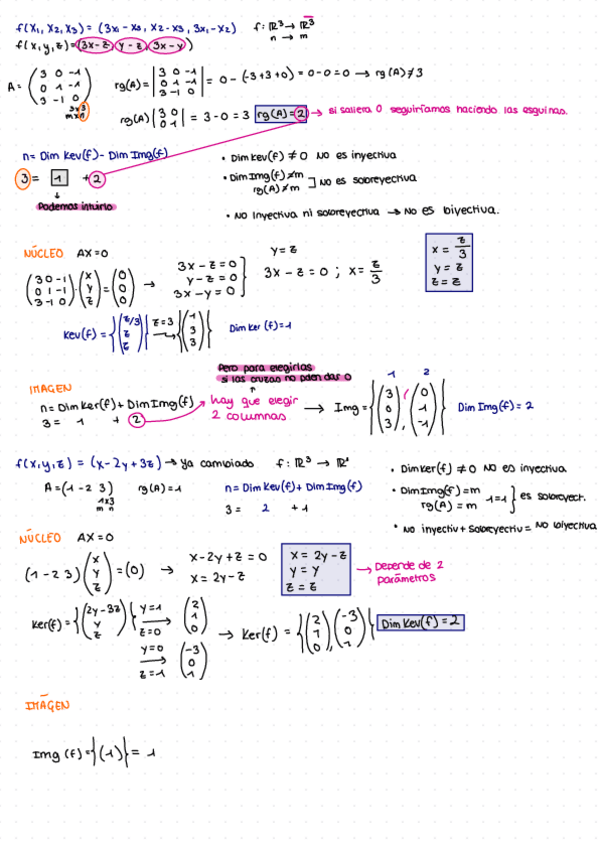 f(x₁, x₂, x₃) = (3x₁ - x₃, x₂ - x₃, 3x₁ - x₂) f: ℝ³ → ℝ³
f(x, y, z) = (3x-z, y-z, 3x-y) n → m
A = (3 0 -1
0 1 -1
3 -1 0)
3x3
mxn
rg(A) = |3 0 -1
0 1 -1
3 -1 0| = 0 - (-3+3+0) = 0-0 = 0 → rg(A) ≠ 3
rg(A) |3 0
0 1| = 3 - 0 = 3 rg(A) = 2 → si saliera 0 seguiríamos haciendo las esquinas.
n = Dim Ker(f) - Dim Img(f)
3 = 1 + 2
↓
Podemos intuirlo
• Dim Ker(f) ≠ 0 NO es inyectiva
• Dim Img(f) ≠ m
rg(A) ≠ m ] NO es sobreyectiva
• No inyectiva ni sobreyectiva → No es biyectiva.
NÚCLEO AX=0
(3 0 -1
0 1 -1
3 -1 0) · (x
y
z) = (0
0
0) → 3x - z = 0
y - z = 0
3x - y = 0 }
y = z
3x - z = 0 ; x = z/3
x = z/3
y = z
z = z
Ker(f) = {(z/3
z
z)} z=3 → {(1
3
3)} Dim Ker (f) = 1
Pero para elegirlas
si las cruzas no pueden dar 0
IMAGEN
n = Dim Ker(f) + Dim Img(f)
3 = 1 + 2
hay que elegir
2 columnas
→ Img = {(3
0
3), (0
1
-1)} Dim Img(f) = 2
1 2
f(x, y, z) = (x - 2y + 3z) → Ya cambiado f: ℝ³ → ℝ¹
A = (1 -2 3) rg(A) = 1 n = Dim Ker(f) + Dim Img(f)
1x3
m n
3 = 2 + 1
• Dim Ker(f) ≠ 0 NO es inyectiva
• Dim Img(f) = m
rg(A) = m 1=1 } es sobreyect.
• No inyectiv + Sobreyectiv = No biyectiva
NÚCLEO AX=0
(1 -2 3) (x
y
z) = (0) → x - 2y + z = 0
x = 2y - z
x = 2y - z
y = y
z = z
→ Depende de 2
parámetros
Ker(f) = {(2y - 3z
y
z)} y=1
z=0 → (2
1
0)
y=0
z=1 → (-3
0
1)
→ Ker(f) = {(2
1
0), (-3
0
1)} Dim Ker(f) = 2
IMAGEN
Img (f) = {(1)} = 1